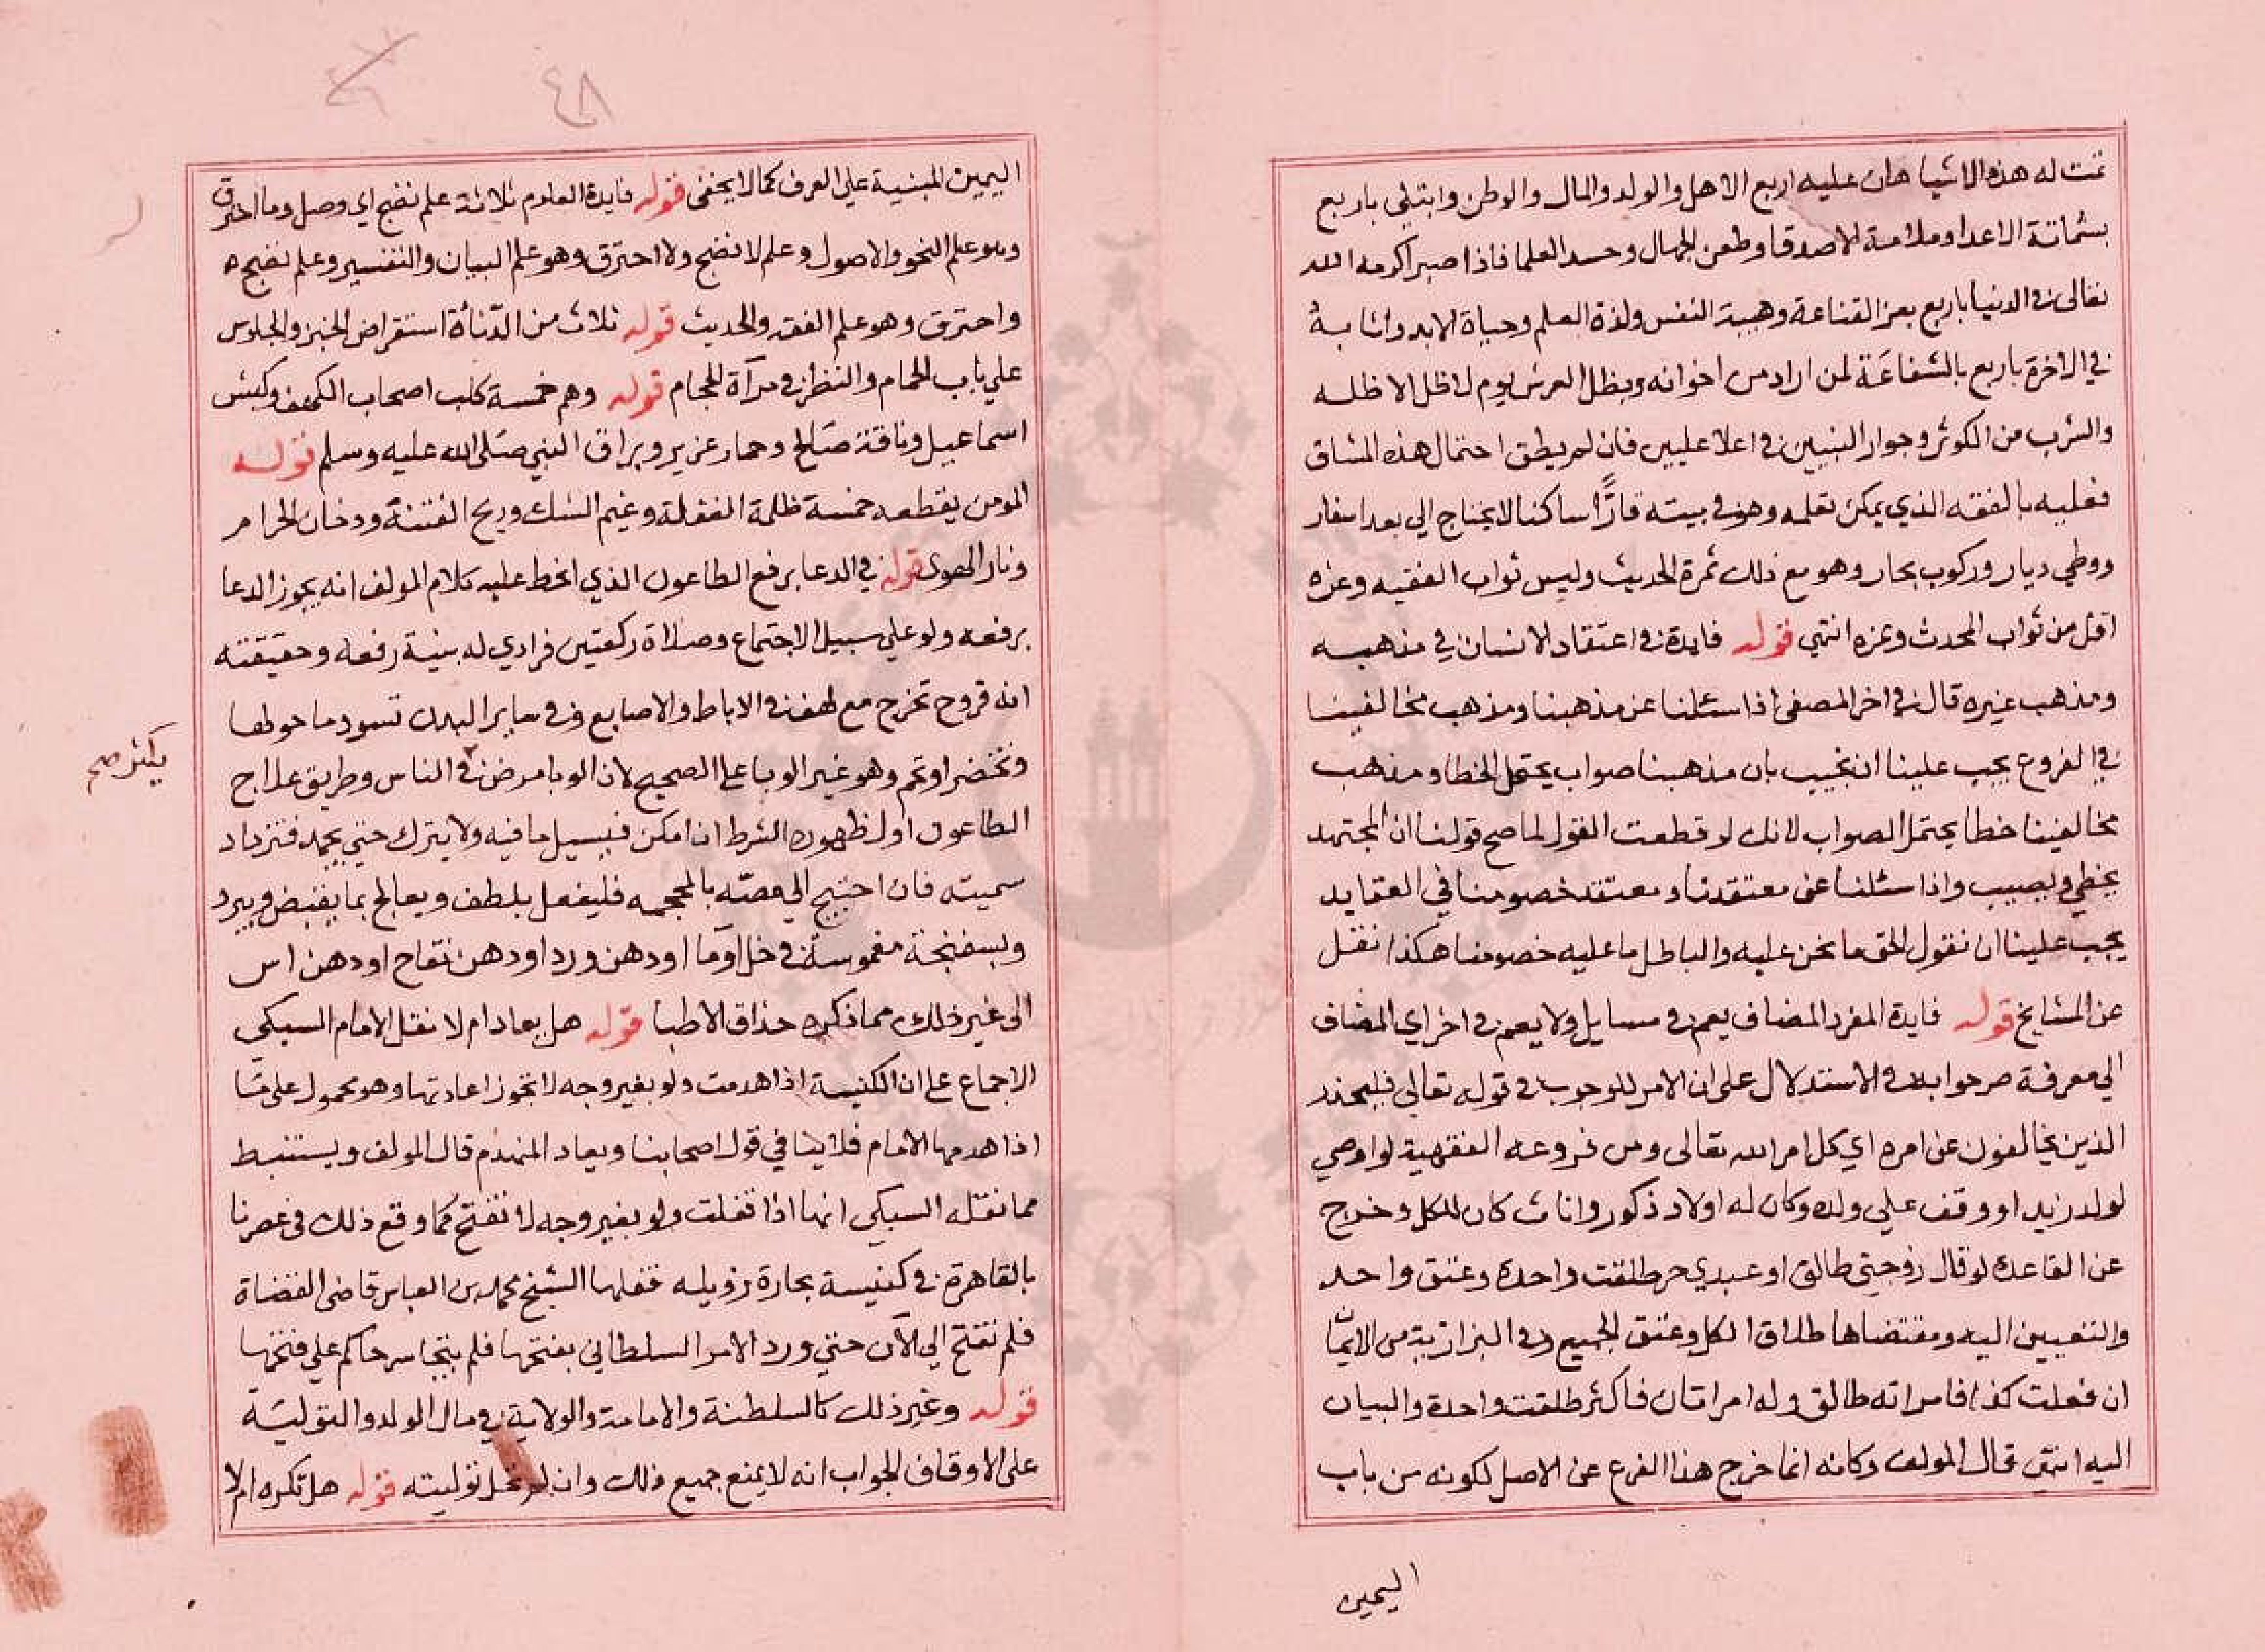 تمت له هذه الاشيا هان عليه اربع الاهل والولد والمال والوطن وابتلي باربع
بشماتة الاعدا وملامة الاصدقا وطعن الجهال وحسد العلما فاذا صبر اكرمه الله
تعالى في الدنيا باربع بعز القناعة وهيبة النفس ولذة العلم وحياة الابد واثابه
في الاخرة باربع بالشفاعة لمن اراد من اخوانه وبظل العرش يوم لا ظل الا ظله
والشرب من الكوثر وجوار النبيين في اعلا عليين فان لم يطق احتمال هذه المشاق
فعليه بالفقه الذي يمكن تعلمه وهو في بيته قارًّا ساكنا لا يحتاج الي بعد اسفار
ووطي ديار وركوب بحار وهو مع ذلك ثمرة الحديث وليس ثواب الفقيه وعزه
اقل من ثواب المحدث وعزه انتهي قوله فايدة في اعتقاد الانسان في مذهبه
ومذهب غيره قال في اخر المصفى اذا سئلنا عن مذهبنا ومذهب مخالفينا
في الفروع يجب علينا ان نجيب بان مذهبنا صواب يحتمل الخطا ومذهب
مخالفينا خطا يحتمل الصواب لانك لو قطعت القول لما صح قولنا ان المجتهد
يخطي ويصيب واذا سئلنا عن معتقدنا ومعتقد خصومنا في العقايد
يجب علينا ان نقول الحق ما نحن عليه والباطل ما عليه خصومنا هكذا نقل
عن المشايخ قوله فايدة المفرد المضاف يعم في مسايل ولا يعم في اخر اي المضاف
الي معرفة صرحوا به في الاستدلال على ان الامر للوجوب في قوله تعالي فليحذر
الذين يخالفون عن امره اي كل امر الله تعالى ومن فروعه الفقهية لو اوصي
لولد زيد او وقف علي ولده وكان له اولاد ذكور واناث كان للكل وخرج
عن القاعدة لو قال زوجتي طالق او عبدي حر طلقت واحدة وعتق واحد
والتعيين اليه ومقتضاها طلاق الكل وعتق الجميع وفي البزازية من الايمان
ان فعلت كذا فامراته طالق وله امراتان فاكثر طلقت واحدة والبيان
اليه انتهى قال المولف وكانه انما خرج هذا الفرع عن الاصل لكونه من باب
اليمين
٤٨
اليمين المبنية علي العرف كما لا يخفى قوله فايدة العلوم ثلاثة علم نضج اي وصل وما احترق
وهو علم النحو والاصول وعلم لا نضج ولا احترق وهو علم البيان والتفسير وعلم نضج
واحترق وهو علم الفقه والحديث قوله ثلاث من الدّنأة استقراض الخبز والجلوس
علي باب الحمام والنظر في مرآة الحجام قوله وهم خمسة كلب اصحاب الكهف وكبش
اسماعيل وناقة صالح وحمار عزير وبراق النبي صلى الله عليه وسلم قوله
المومن يقطعه خمسة ظلمة الغفلة وغيم الشك وريح الفتنة ودخان الحرام
ونار الهوى قوله في الدعا برفع الطاعون الذي انحط عليه كلام المولف انه يجوز الدعا
برفعه ولو علي سبيل الاجتماع وصلاة ركعتين فرادي له بنية رفعه وحقيقته
انه قروح تخرج مع لهف في الاباط والاصابع وفي ساير البدن تسود ما حولها
وتخضر او تحمر وهو غير الوبا على الصحيح لان الوبا مرض في الناس وطريق علاج
يكثر صح
الطاعون اول ظهوره الشرط ان امكن فيسيل ما فيه ولا يترك حتي يجمد فتزداد
سميته فان احتيج الي مصّه بالمحجمه فليفعل بلطف ويعالج بما يقبض ويبرد
وبسفنجة مغموسة في خل اوما او دهن ورد او دهن تفاح او دهن اس
الى غير ذلك مما ذكره حذاق الاطبا قوله هل يعاد ام لا نقل الامام السبكي
الاجماع على ان الكنيسة اذا هدمت ولو بغير وجه لا تجوز اعادتها وهو محمول على ما
اذا هدمها الامام فلا ينافي قول اصحابنا ويعاد المنهدم قال المولف ويستنبط
مما نقله السبكي انها اذا قفلت ولو بغير وجه لا تفتح كما وقع ذلك في عصرنا
بالقاهرة في كنيسة بحارة زويله قفلها الشيخ محمد بن العباس قاضي القضاة
فلم تفتح الي الآن حتي ورد الامر السلطاني بفتحها فلم يتجاسر حاكم علي فتحها
قوله وغير ذلك كالسلطنة والامامة والولاية في مال الولد والتولية
على الاوقاف الجواب انه لا يمنع جميع ذلك وان لم تحل توليته قوله هل تكره ام لا